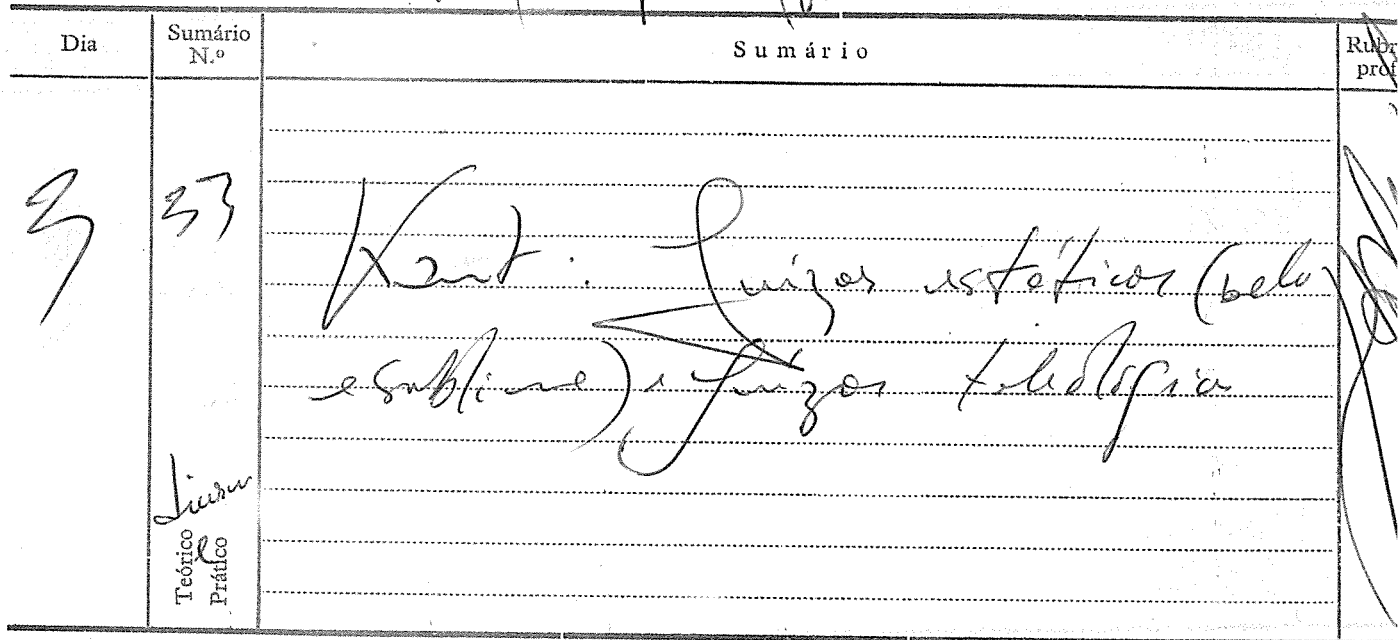 Dia
Sumário
N.º
Sumário
Rubr
prof
3
33
Kant. Juízos estéticos (belo
e sublime) e Juízos teleológicos
Teórico e
Prático